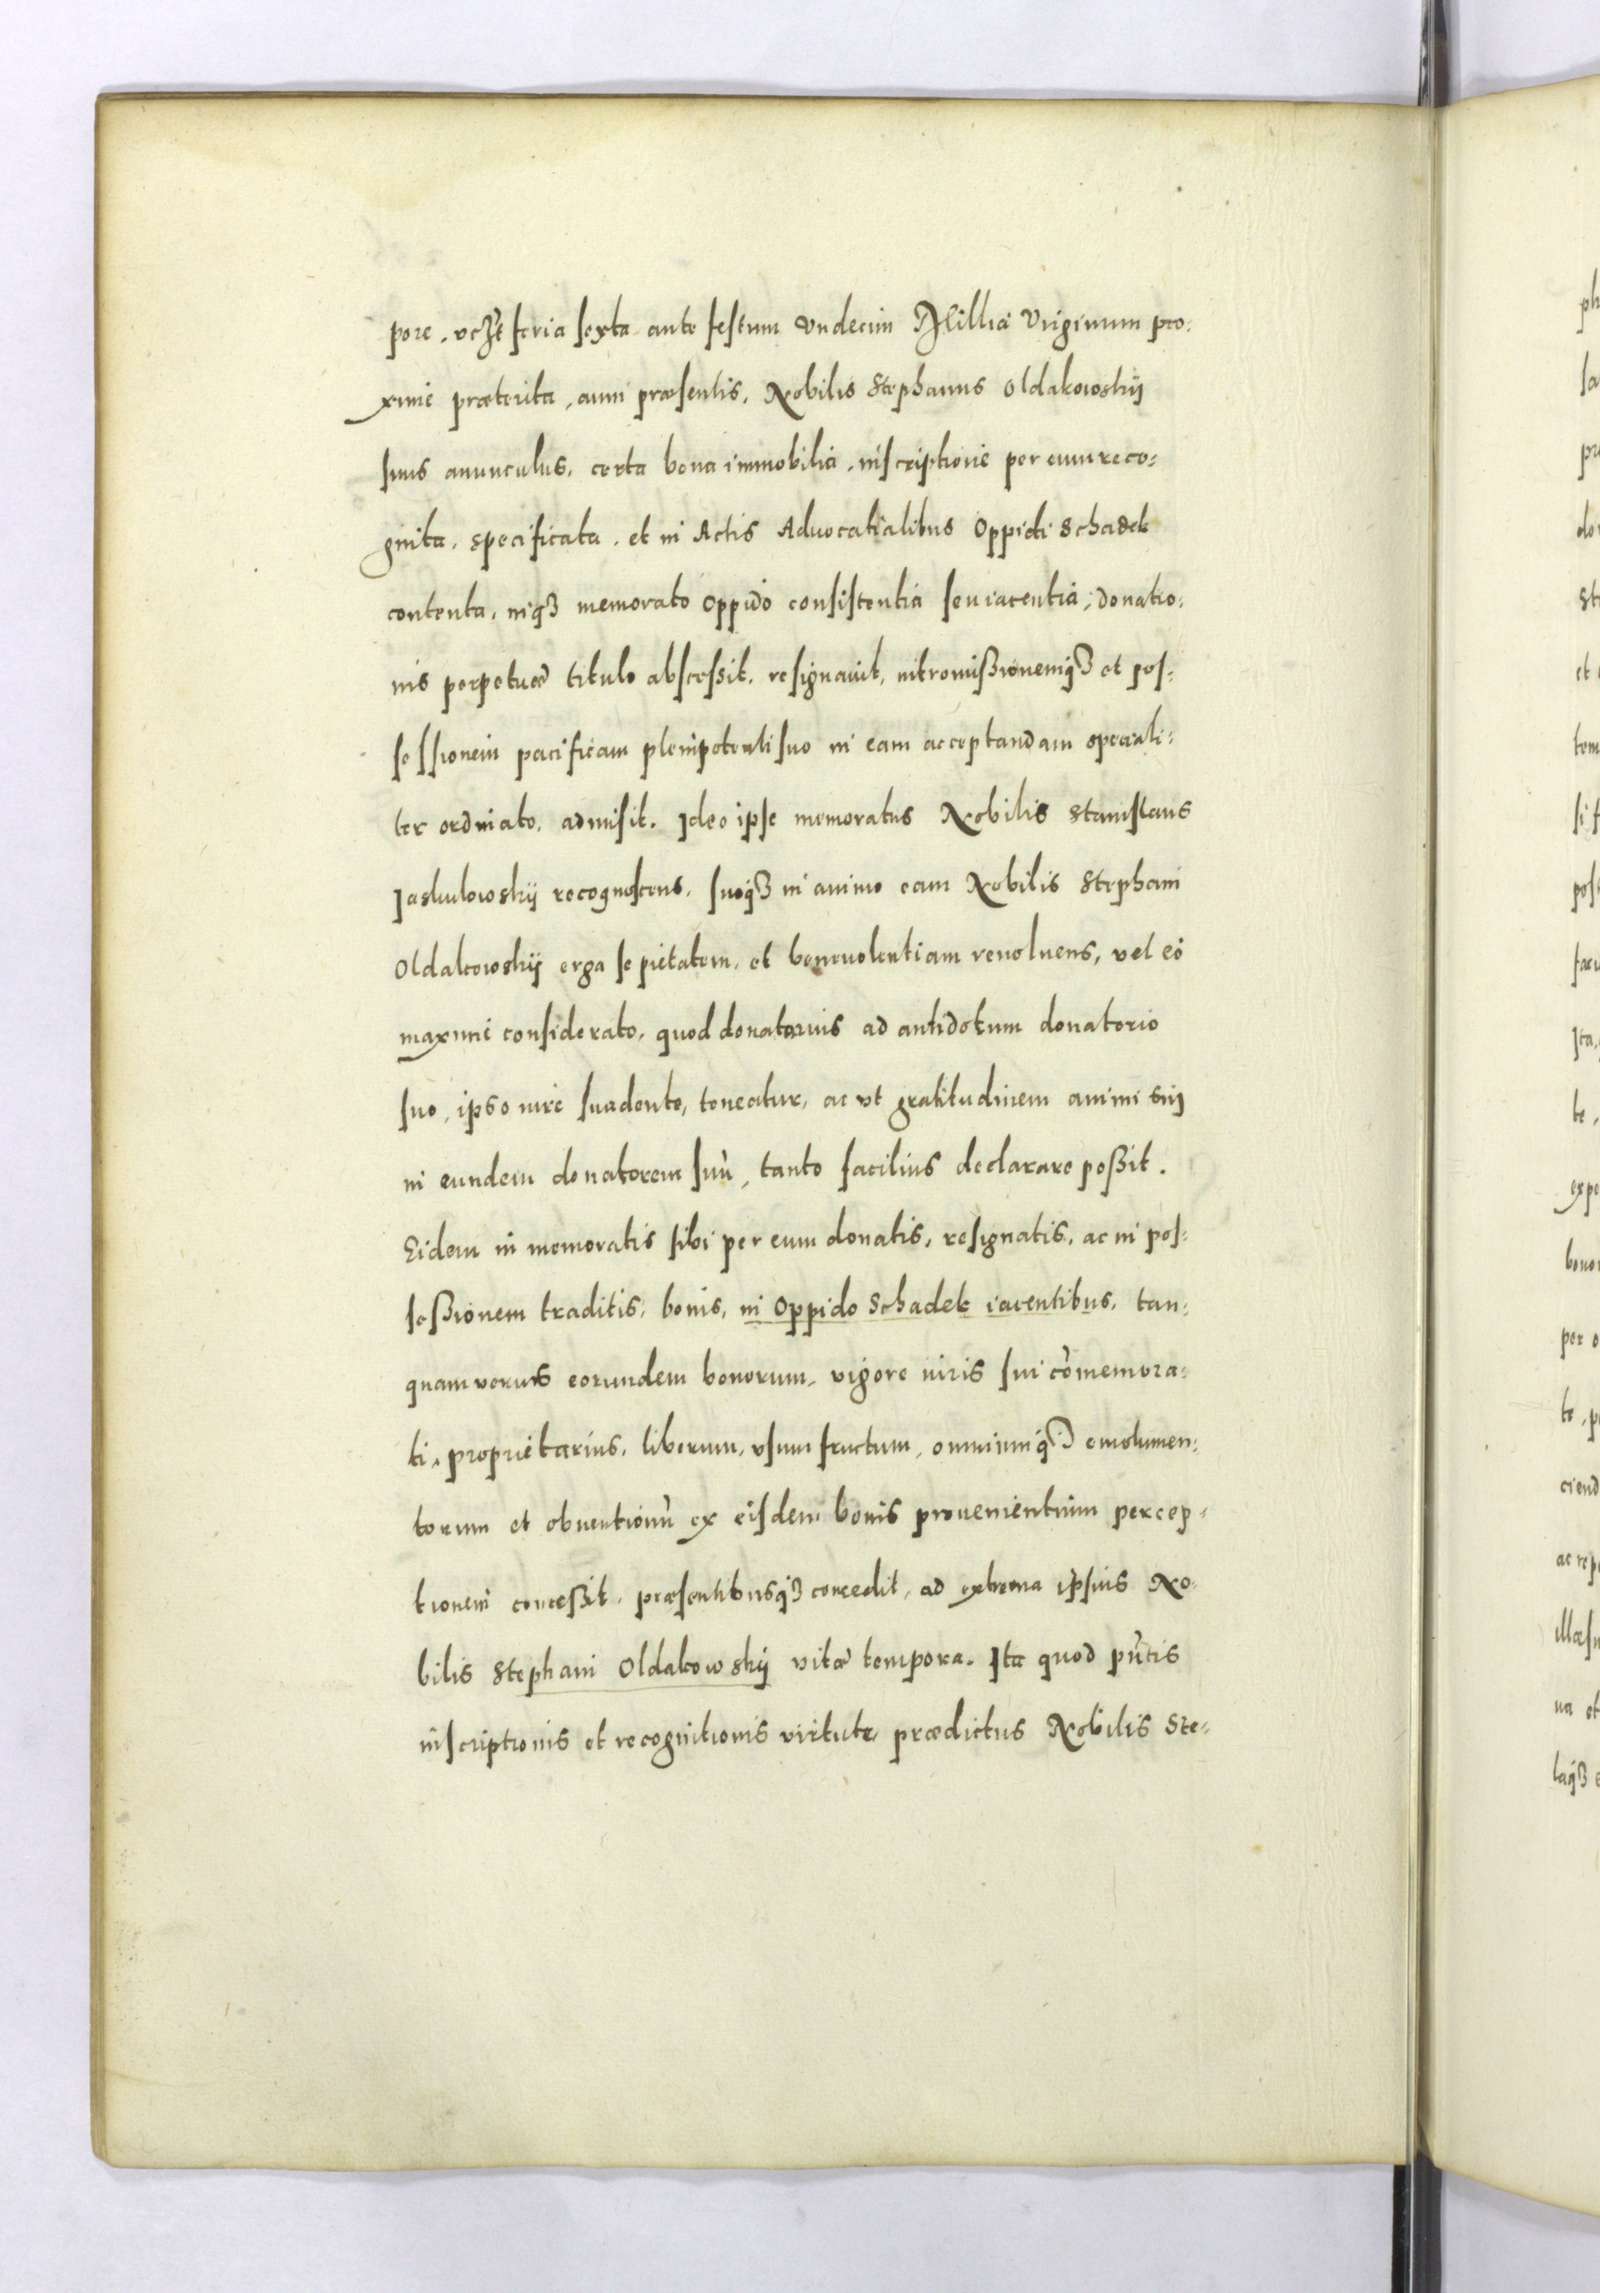 pore, vczt feria sexta ante festum Vndecim Milliā Virginum pro-
xime præterita, anni præsentis, Nobilis Stephanus Oldakowskij
suus auunculus, certa bona immobilia, inscriptione per eum reco-
gnita, specificata, et in Actis Aduocatialibus Oppidi Schadek
contenta, inqȝ memorato Oppido consistentia seu iacentia, donatio-
nis perpetuæ titulo abscessit, resignauit, intromißionemqȝ et pos-
sessionem pacificam plenipotenti suo in eam acceptandam speciali-
ter ordinato, admisit. Ideo ipse memoratus Nobilis Stanislaus
Jaskulowskij recognoscens, suoqȝ in animo eam Nobilis Stephani
Oldakowskij erga se pietatem, et beneuolentiam reuoluens, vel eo
maxime considerato, quod donatarius ad antidotum donatorio
suo, ipso iure suadente, teneatur, ac vt gratitudinem animi sui
in eundem donatorem suū, tanto facilius declarare poßit.
Eidem in memoratis sibi per eum donatis, resignatis, ac in pos-
seßionem traditis, bonis, in Oppido Schadek iacentibus, tan-
quam verus eorundem bonorum, vigore iuris sui cōmemora-
ti, proprietarius, liberum, vsum fructum, omniumqȝ emolumen-
torum et obuentionū ex eisdem bonis prouenientium percep-
tionem conceßit, præsentibusqȝ concedit, ad extrema ipsius No-
bilis Stephani Oldakowskij vitæ tempora. Ita quod pn̄tis
inscriptionis et recognitionis virtute, prædictus Nobilis Ste-